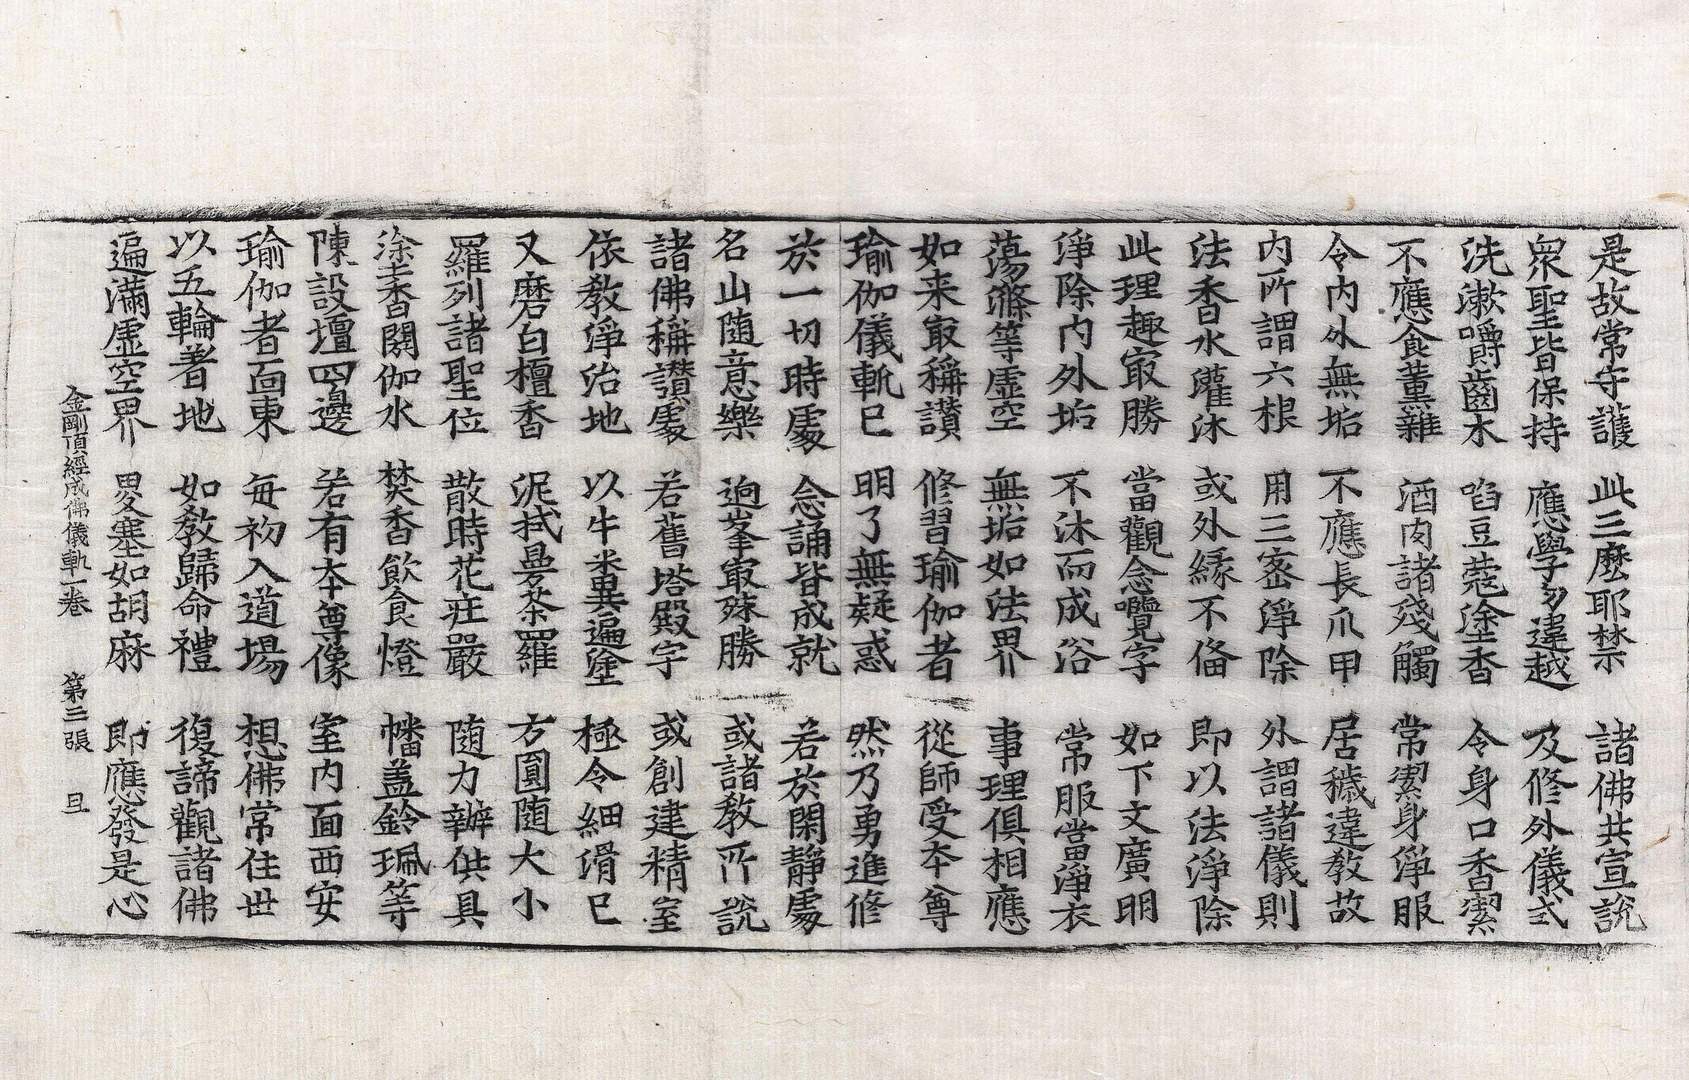 是故常守護　此三麽耶禁　諸佛共宣說
衆聖皆保持　應學多違越　及修外儀式
洗漱嚼齒木　㗖豆蔻塗香　令身口香潔
不應食薰雜　酒肉諸殘觸　常潔身淨服
令內外無垢　不應長爪甲　居穢違教故
內所謂六根　用三密淨除　外謂諸儀則
法香水灌沐　或外緣不俻　即以法淨除
此理趣㝡勝　當觀念囕字　如下文廣明
淨除內外垢　不沐而成浴　常服當淨衣
蕩滌等虛空　無垢如法界　事理俱相應
如来㝡稱讃　修習瑜伽者　從師受本尊
瑜伽儀軌已　明了無疑惑　然乃勇進修
於一切時處　念誦皆成就　若於閑靜處
名山随意樂　逈峯㝡殊勝　或諸教所說
諸佛稱讃處　若舊塔殿宇　或創建精室
依教淨治地　以牛糞遍塗　極令細滑已
又磨白檀香　泥拭曼荼羅　方圓随大小
羅列諸聖位　散時花莊嚴　随力辦供具
塗香閼伽水　焚香飲食燈　幡盖鈴珮等
陳設壇四邊　若有本尊像　室內面西安
瑜伽者面東　每初入道場　想佛常住世
以五輪著地　如教歸命禮　復諦觀諸佛
遍滿虛空界　畟塞如胡麻　即應發是心
金剛頂經成佛儀軌一卷　第三張　旦